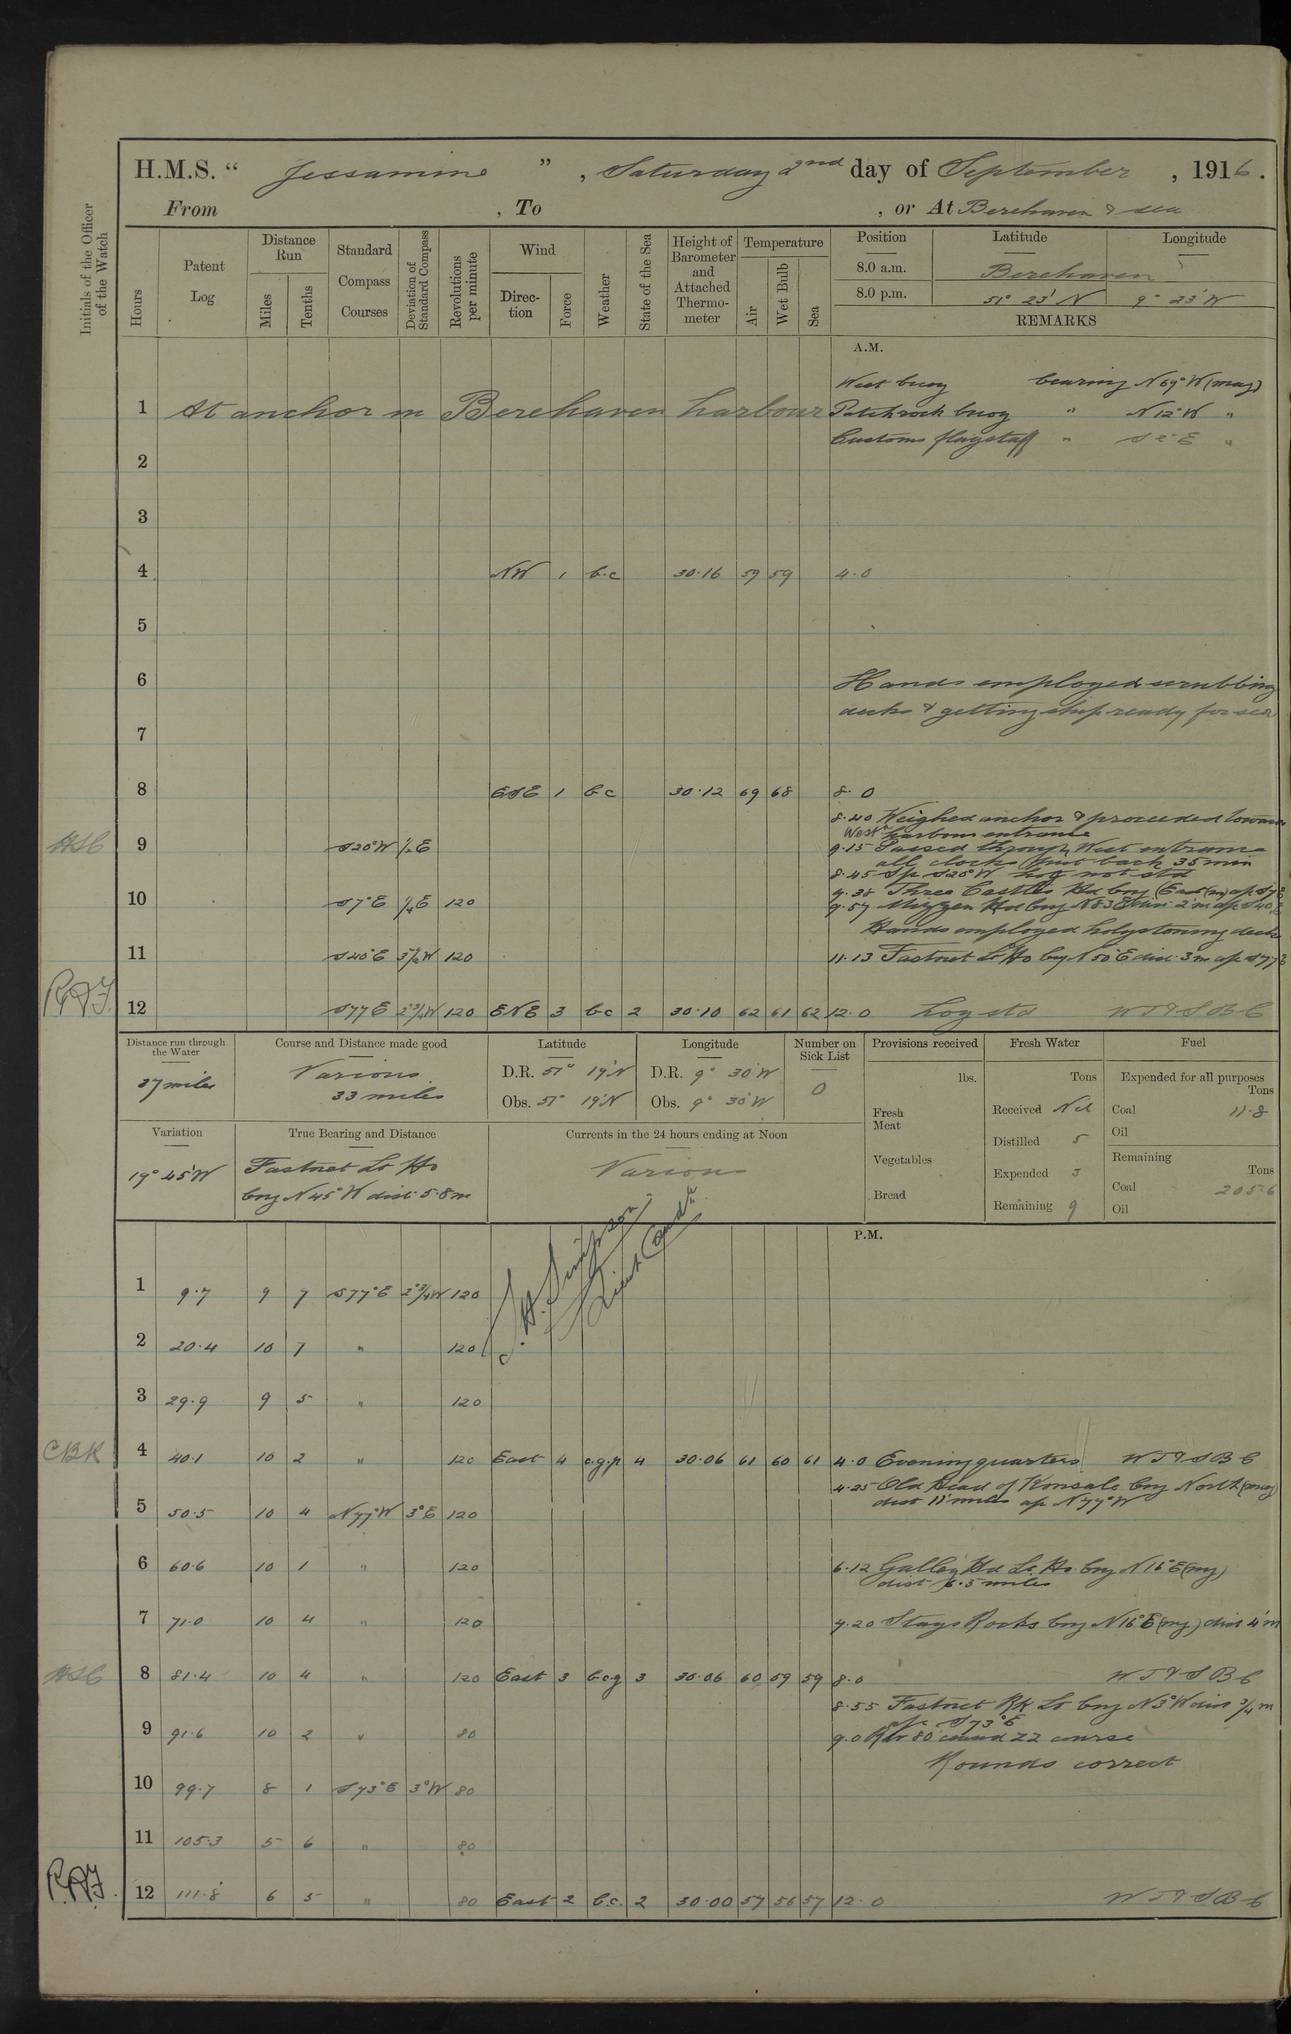 H.M.S. “ Jessamine ”, Saturday 2nd day of September, 1916.
From , To , or At Berehaven & sea
Initials of the Officer of the Watch
Hours
Patent Log
Distance Run
Miles
Tenths
Standard Compass Courses
Deviation of Standard Compass
Revolutions per minute
Wind
Direction
Force
Weather
State of the Sea
Height of Barometer and Attached Thermometer
Temperature
Air
Wet Bulb
Sea
Position Latitude Longitude
8.0 a.m. Berehaven
8.0 p.m. 51° 23' N 9° 23' W
REMARKS
A.M.
West buoy bearing N 69° W (mag)
1 At anchor in Berehaven harbour Patch rock buoy " N 12° W "
Customs flagstaff " S 2° E "
2
3
4 NW 1 b.c 30.16 59 59 4.0
5
6 Hands employed scrubbing
decks & getting ship ready for sea
7
8 ESE 1 b c 30.12 69 68 8.0
8.40 Weighed anchor & proceeded towards
West harbour entrance
HSC 9 S20°W ½E 9.15 Passed through West entrance
all clocks put back 35 min
8.45 Sp S20°W not std
9.38 Three Castles Hd brg (East (m) a/c S7°E
10 S7°E ¼E 120 9.57 Mizzen Hd brg N83°E dist 2'm a/c S40°E
Hands employed holystoning decks
11 S40°E 120 11.13 Fastnet Lt Ho brg N50°E dist 3m a/c S77°E
RAF. 12 S77E 2¾W 120 ENE 3 b c 2 30.10 62 61 62 12.0 Log std W T & S B C
Distance run through the Water
37 miles
Course and Distance made good
Various
33 miles
Latitude
D.R. 51° 19'N
Obs. 51° 19'N
Longitude
D.R. 9° 30'W
Obs. 9° 30'W
Number on Sick List
0
Provisions received
lbs.
Fresh Meat
Vegetables
Bread
Fresh Water
Tons
Received Nil
Distilled 5
Expended 5
Remaining 9
Fuel
Expended for all purposes
Tons
Coal 11.8
Oil
Remaining
Tons
Coal 205.6
Oil
Variation
19° 45'W
True Bearing and Distance
Fastnet Lt Ho
brg N45°W dist 5.8m
Currents in the 24 hours ending at Noon
Various
Simpson
Lieut Comdr
P.M.
1 9.7 9 7 S77°E 2¾W 120
2 20.4 10 7 " 120
3 29.9 9 5 " 120
CBK 4 40.1 10 2 " 120 East 4 c.g.p 4 30.06 61 60 61 4.0 Evening quarters W T & S B C
4.25 Old Head of Kinsale brg North (mag)
dist 11 miles a/c N77°W
5 50.5 10 4 N77°W 3°E 120
6 60.6 10 1 " 120 6.12 Galley Hd Lt. Ho. brg N16°E (mg)
dist 6.5 miles
7 71.0 10 4 " 120 7.20 Stags Rocks brg N16°E (mg) dist 4'm
HSC 8 81.4 10 4 " 120 East 3 bcg 3 30.06 60 59 59 8.0 W T & S B C
8.55 Fastnet Rk Lt brg N3°W dist ¾m
a/c S73°E
9 91.6 10 2 " 80 9.0 Rev 80 ZZ course
Rounds correct
10 99.7 8 1 S73°E 3°W 80
11 105.3 5 6 " 80
RAF. 12 111.8 6 5 " 80 East 2 b.c. 2 30.00 57 56 57 12.0 W T & S B C